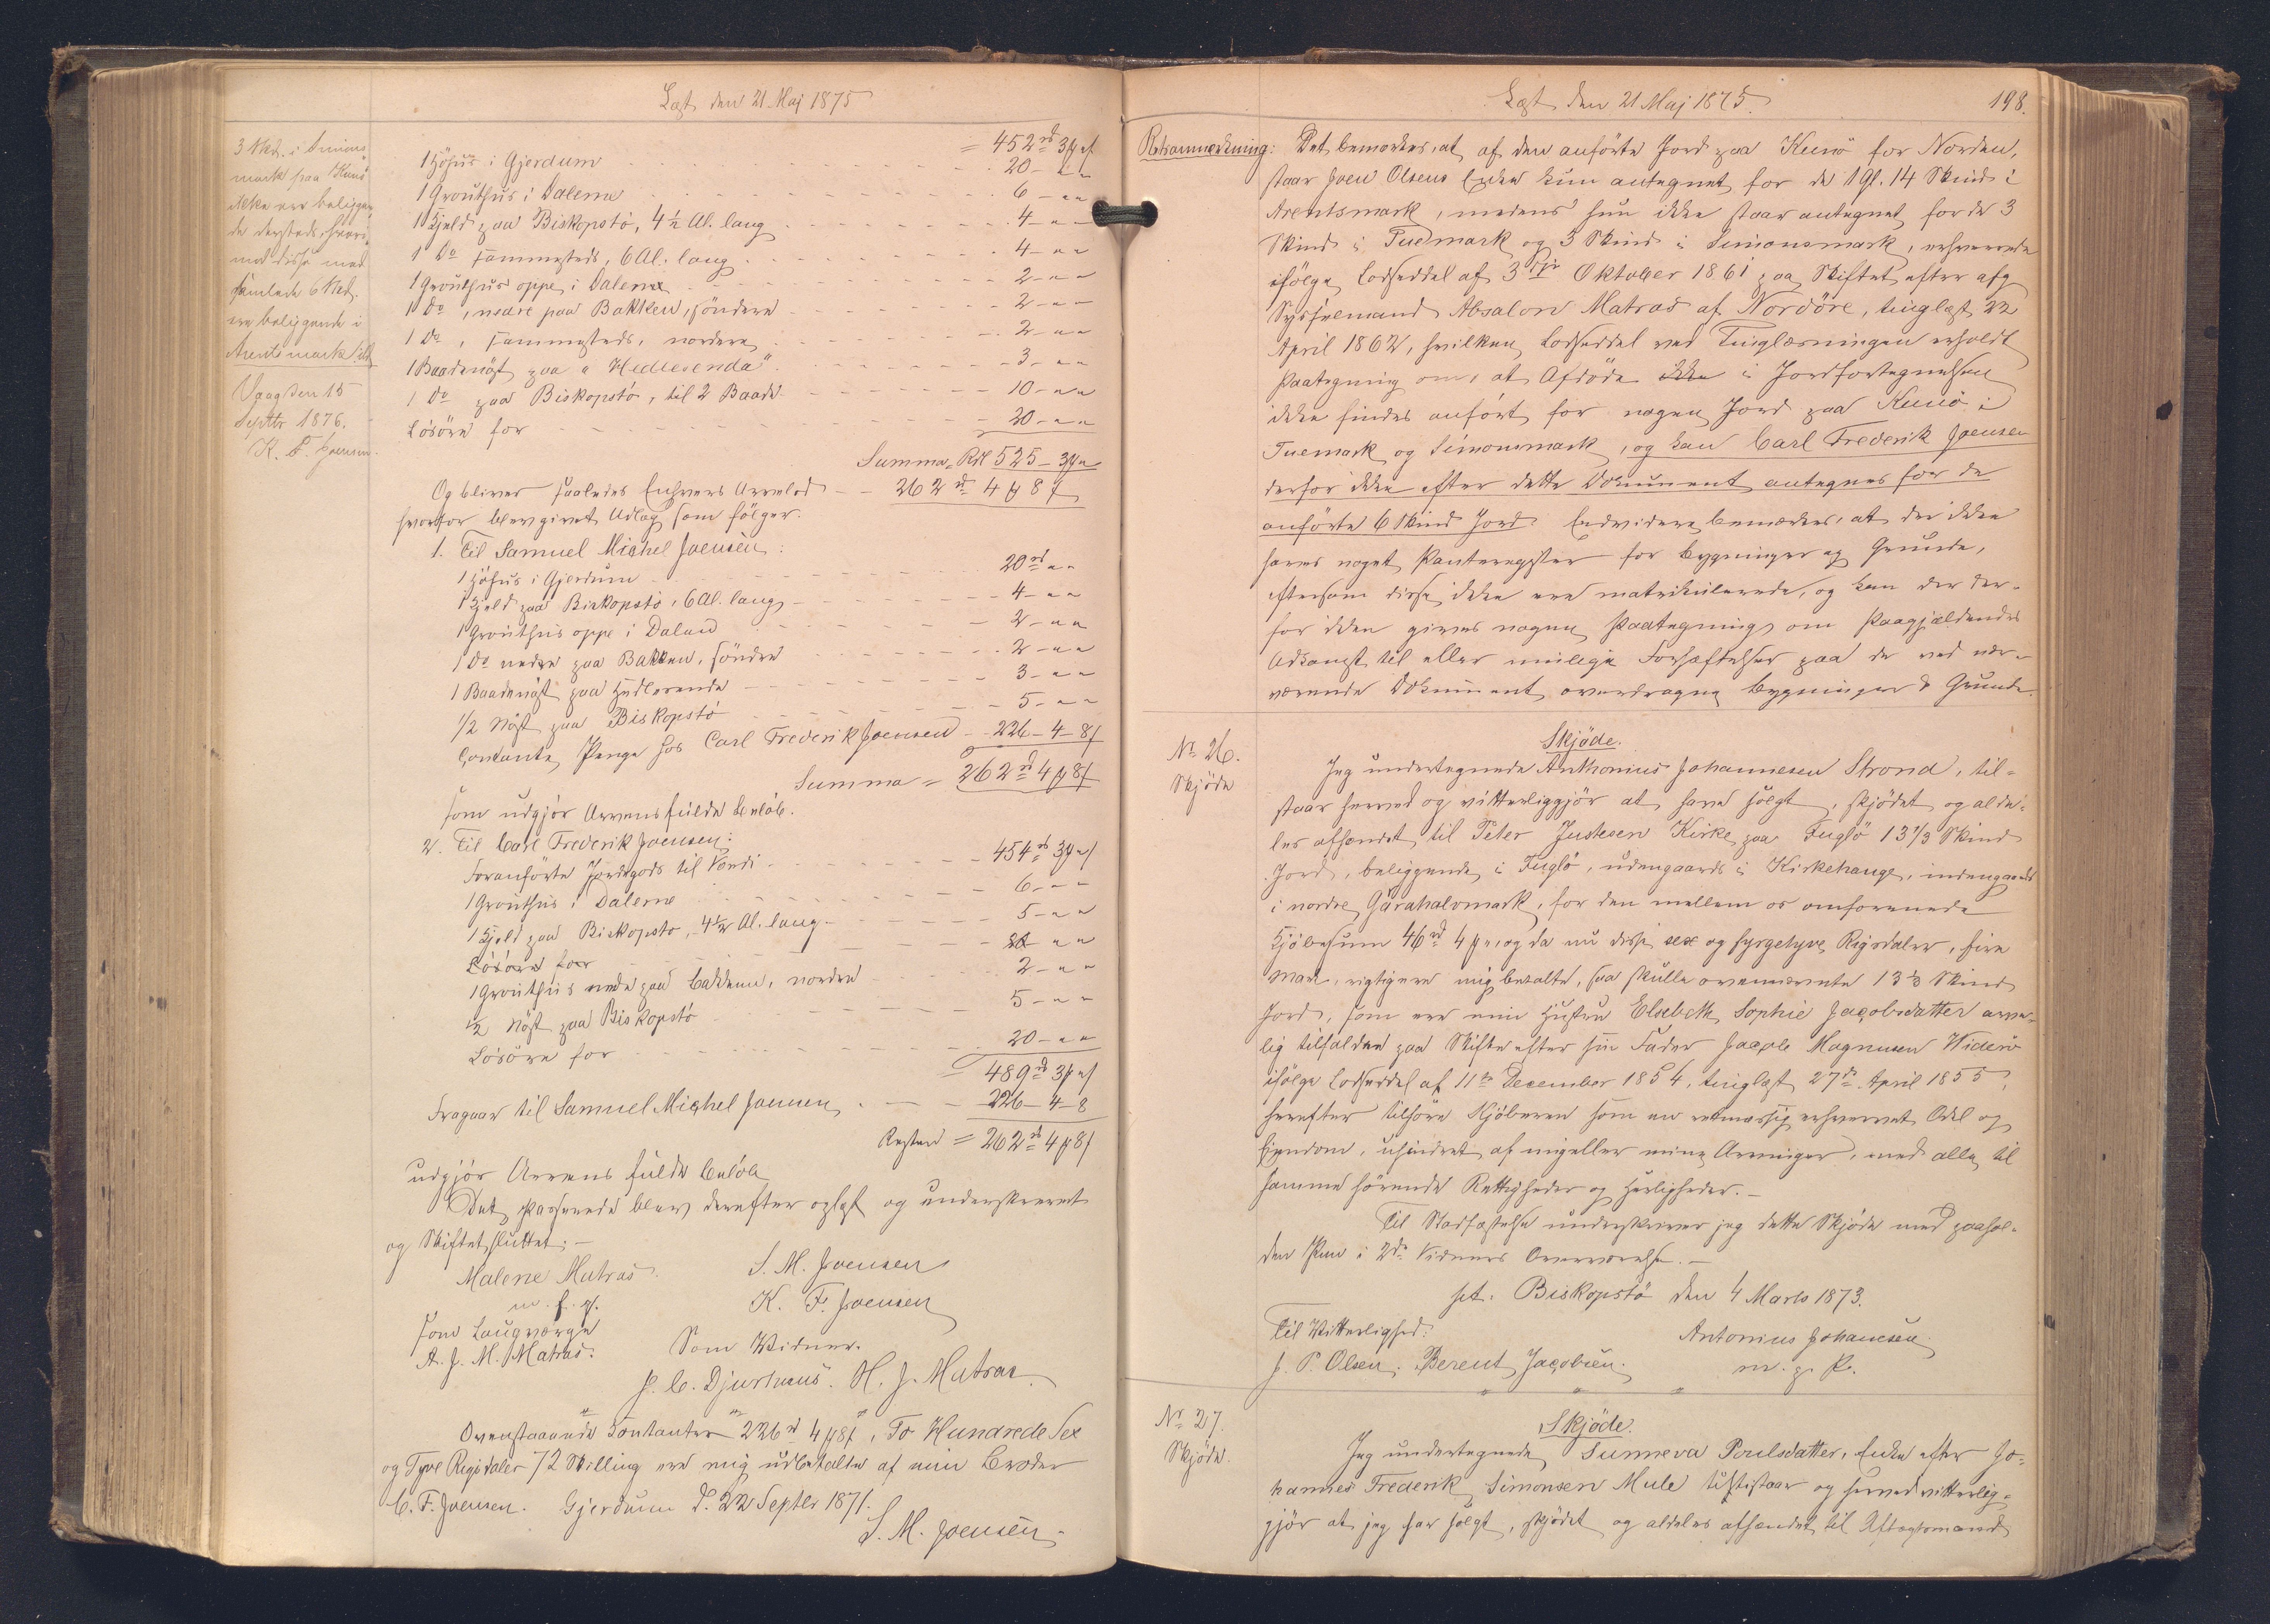 Læst den 21 Maj 1875
3 Skd. i Simons
mark paa Kunö
ikke ere beliggen
de dersteds, hvori
mod disse med
samlede 6 Skd.
ere beliggende i
Arentsmark sstds
Vaag den 15
Septbr 1876.
K. F. Joensen.
= 452 rd 3 # " ß
1 Höhus i Gjerdum 20 - " "
1 Grouthus i Dalene 6 - " "
1 Hjeld paa Biskopstö, 4 ½ Al. lang 4 - " "
1 Do sammesteds, 6 Al. lang 4 - " "
1 Grouthus oppe i Dalene 2 - " "
1 Do, nedre paa Bakken, söndere 2 - " "
1 Do, sammesteds, nordere 2 - " "
1 Baadenöst paa "Hedlerenda" 3 - " "
1 Do paa Biskopstö, til 2 Baade 10 - " "
Lösöre for 20 - " "
Summa = Rdl 525 - 3 # "
Og bliver saaledes Enhvers Arvelod 262 rd 4 # 8 ß
hvorfor blev givet Udlæg som fölger:
1. Til Samuel Michel Joensen:
1 Höhus i Gjerdum 20 rd " "
1 Hjeld paa Biskopstö, 6 Al. lang 4 - " "
1 Grouthus oppe i Dalene 2 - " "
1 Do nedre paa Bakken, söndre 2 - " "
1 Baadenöst paa Hedlerenda 3 - " "
1/2 Nöst paa Biskopstö 5 - " "
Contante Penge hos Carl Frederik Joensen 226 - 4 - 8 ß
Summa = 262 rd 4 # 8 ß
som udgjör Arvens fulde Belöb.
2. Til Carl Frederik Joensen:
Foranförte Jordegods til Værdi 454 rd 3 # " ß
1 Grouthus i Dalene 6 - " "
1 Hjeld paa Biskopstö, 4 ½ Al. lang 5 - " "
Lösöre for
1 Grouthus nede paa Bakken, nordre 2 - " "
½ Nöst paa Biskopstö 5 - " "
Lösöre for 20 - " "
489 rd 3 # " ß
Fragaar til Samuel Michel Joensen 226 - 4 - 8
Resten = 262 rd 4 # 8 ß
udgjör Arvens fulde Belöb
Det passerede blev derefter oplæst og underskrevet
og Skiftet sluttet. -
Malene Matras S. M. Joensen
m. f. p. K. F. Joensen
som Laugværge
A. J. M. Matras. Som Vidner.
J. C. Djurhuus. H. J. Matras
Ovenstaaende Contanter "226 rd 4 # 8 ß", To Hundrede Sex
og Tyve Rigsdaler 72 Skilling ere mig udbetalte af min Broder
C. F. Joensen. Gjerdum d. 22 Septbr 1871.
S. M. Joensen
Læst den 21 Maj 1875.
198.
Retsanmærkning: Det bemærkes, at af den anförte Jord paa Kunö for Norden,
staar Joen Olsens Enke kun antegnet for de 1 Gl. 14 Skind i
Arentsmark, medens hun ikke staar antegnet for de 3
Skind i Tuemark og 3 Skind i Simonsmark, erhvervede
ifölge Lodseddel af 3die Oktober 1861 paa Skiftet efter afg.
Sysselmand Absalon Matras af Nordöre, tinglæst 22
April 1862, hvilken Lodseddel ved Tinglæsningen erholdt
Paategning om, at Afdöde ikke i Jordfortegnelsen
ikke findes anfört for nogen Jord paa Kunö i
Tuemark og Simonsmark, og kan Carl Frederik Joensen
derfor ikke efter dette Dokument antegnes for de
anförte 6 Skind Jord. Endvidere bemærkes, at der ikke
haves noget Panteregister for Bygninger og Grunde,
eftersom disse ikke ere matrikulerede, og kan der der-
for ikke gives nogen Paategning om Paagjældendes
Adkomst til eller mulige Forhæftelser paa de ved nær-
værende Dokument overdragne Bygninger & Grunde.
No 26.
Skjöde
Skjöde.
Jeg undertegnede Anthonius Johannesen Strond, til-
staar herved og vitterliggjör at have solgt, skjödet og alde-
les afhændet til Peter Justesen Kirke paa Fuglö 13 1/3 Skind
Jord, beliggende i Fuglö, udengaards i Kirkehauge, indengaards
i nordre Garahalomark, for den mellem os omforenede
Kjöbesum 46 rd 4 # ", og da nu disse sex og fyrgetyve Rigsdaler, fire
Mark, rigtig ere mig betalte, saa skulle ovennævnte 13 ⅓ Skind
Jord, som ere min Hustru Elsebeth Sophie Jacobsdatter arve-
lig tilfaldne paa Skifte efter sin Fader Jacob Magnusen Viderö
ifölge Lodseddel af 11te December 1854, tinglæst 27de April 1855,
herefter tilhöre Kjöberen som en retmæssig erhvervet Odel og
Ejendom, uhindret af mig eller mine Arvinger, med alle til
samme hörende Rettigheder og Herligheder. -
Til Stadfæstelse underskriver jeg dette Skjöde med paahol-
den Pen i 2de Vidners Overværelse. -
pt. Biskopstö den 4 Marts 1873.
Til Vitterlighed: Antonius Johanesen
J. P. Olsen. Berent Jacobsen. m. p. P.
No 27.
Skjöde.
Skjöde.
Jeg undertegnede Sunneva Poulsdatter, Enke efter Jo-
hannes Frederik Simonsen Mule tilstaar og herved vitterlig-
gjör at jeg har solgt, skjödet og aldeles afhændet til Aftægtsmand